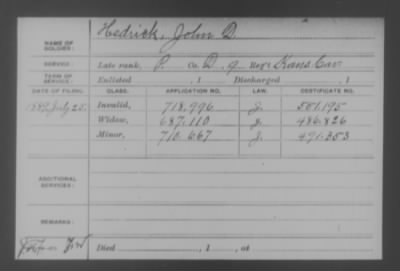 NAME OF SOLDIER: Hedrick, John D.
SERVICE: Late rank, P. Co. D, 9 Reg't Kans. Cav.
TERM OF SERVICE: Enlisted , 1 Discharged , 1
DATE OF FILING. CLASS. APPLICATION NO. LAW. CERTIFICATE NO.
1889 July 25. Invalid, 718,996 J. 501,195
Widow, 687,110 J. 486,826
Minor, 710,667 J. 491,353
ADDITIONAL SERVICES:
REMARKS:
Died , 1 , at